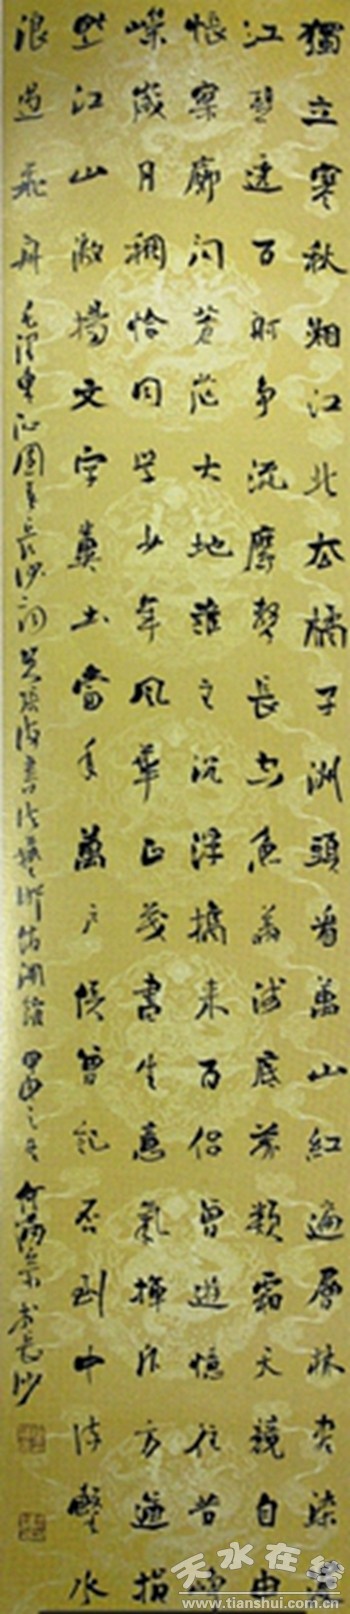 獨立寒秋湘江北去橘子洲頭看萬山紅遍層林盡染漫
江碧透百舸爭流鷹擊長空魚翔淺底萬類霜天競自由
悵寥廓問蒼茫大地誰主沉浮攜來百侶曾遊憶往昔崢
嶸歲月稠恰同學少年風華正茂書生意氣揮斥方遒指
點江山激揚文字糞土當年萬戶侯曾記否到中流擊水
浪遏飛舟 毛澤東沁園春長沙詞 張海書法藝術館開館 甲申之冬 何滿宗於長沙
天水在线
www.tianshui.com.cn